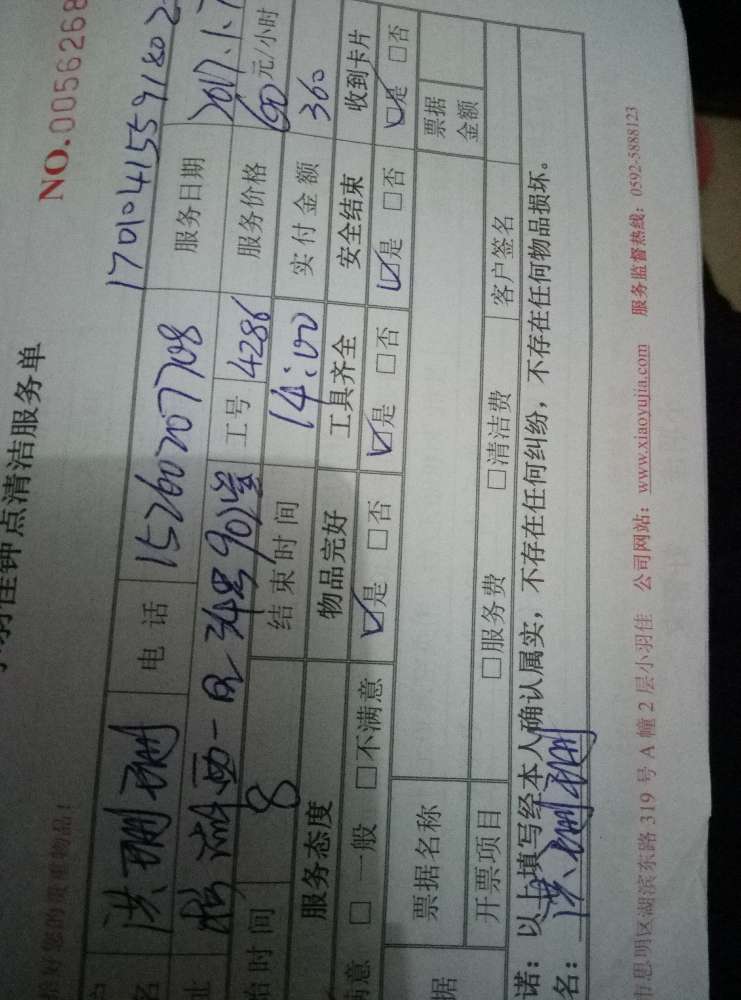 羽佳钟点清洁服务单
NO.0056268
好您的贵重物品！
1701041559180
名 洪珊珊 电话 15260207708 服务日期 2017.1.7
址 西一 348号 901室 工号 4286 服务价格 60元/小时
始时间 8 结束时间 14:00 实付金额 360
服务态度 物品完好 工具齐全 安全结束 收到卡片
满意 □一般 □不满意 ☑是 □否 ☑是 □否 ☑是 □否 ☑是 □否
据 票据名称 票据金额
开票项目 □服务费 □清洁费 客户签名
诺：以上填写经本人确认属实，不存在任何纠纷，不存在任何物品损坏。
名：洪珊珊
市思明区湖滨东路 319 号 A 幢 2 层小羽佳 公司网站：www.xiaoyujia.com 服务监督热线：0592-5888123